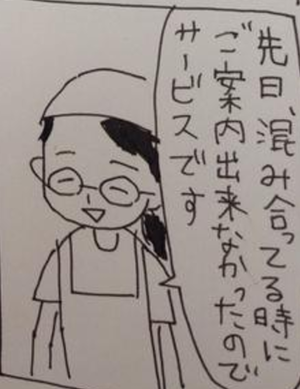 先日、混み合ってる時に
ご案内出来なかったので
サービスです